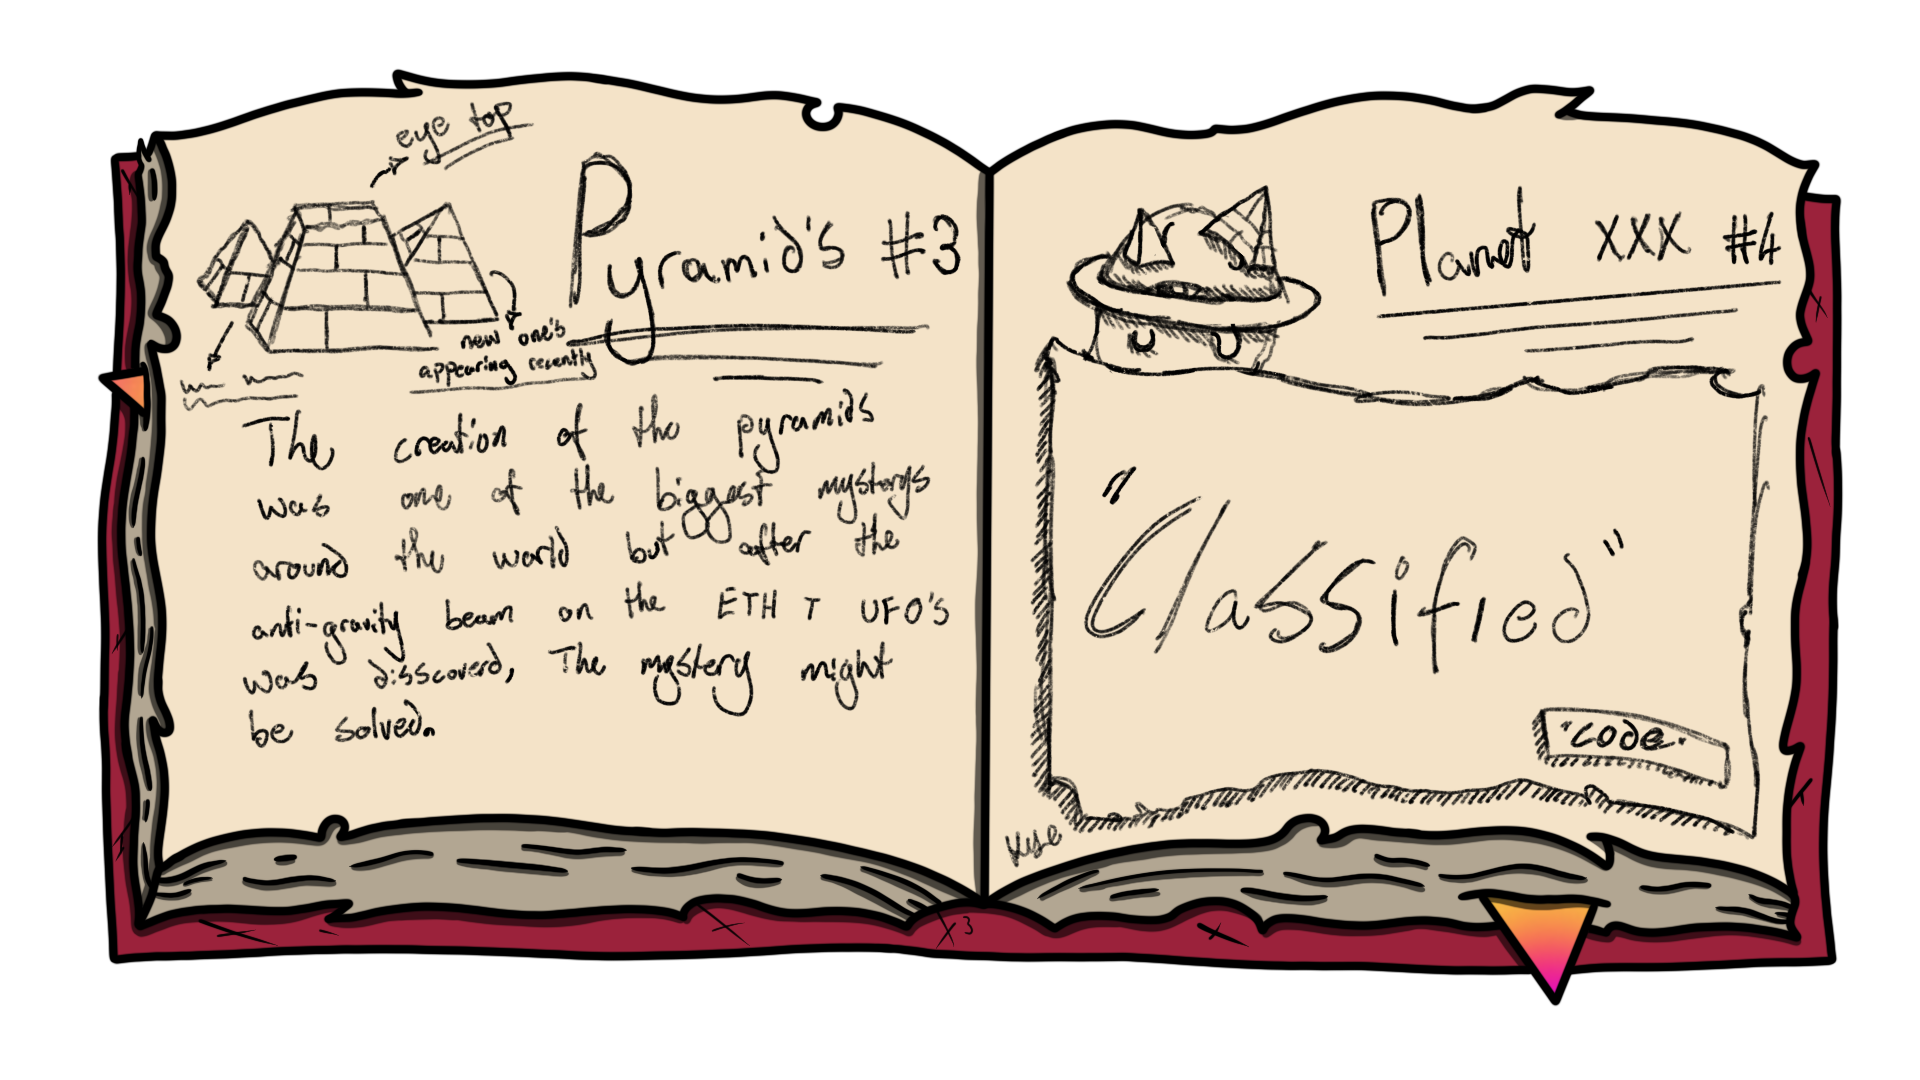 eye top
Pyramid's #3
new one's
appearing recently
The creation of the pyramids
was one of the biggest mysterys
around the world but after the
anti-gravity beam on the ETH T UFO's
was disscoverd, The mystery might
be solved.
Planet XXX #4
"Classified"
"code.
3